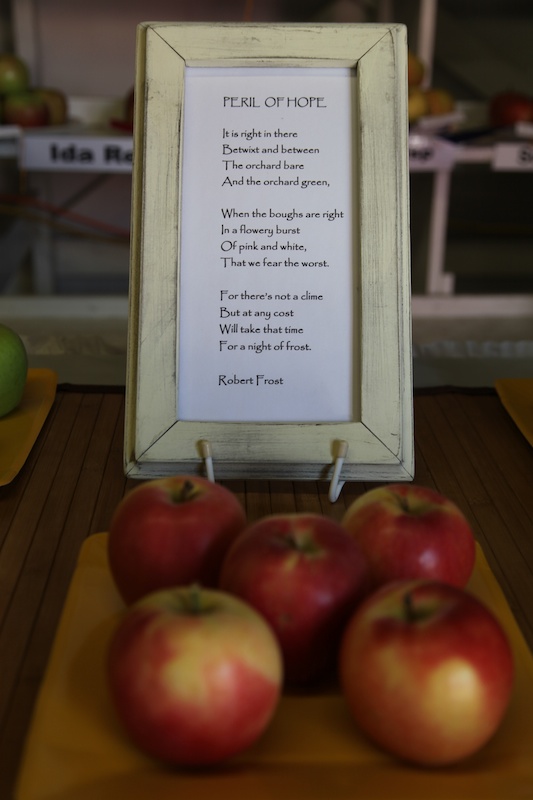 PERIL OF HOPE
It is right in there
Betwixt and between
The orchard bare
And the orchard green,
When the boughs are right
In a flowery burst
Of pink and white,
That we fear the worst.
For there's not a clime
But at any cost
Will take that time
For a night of frost.
Robert Frost
Ida